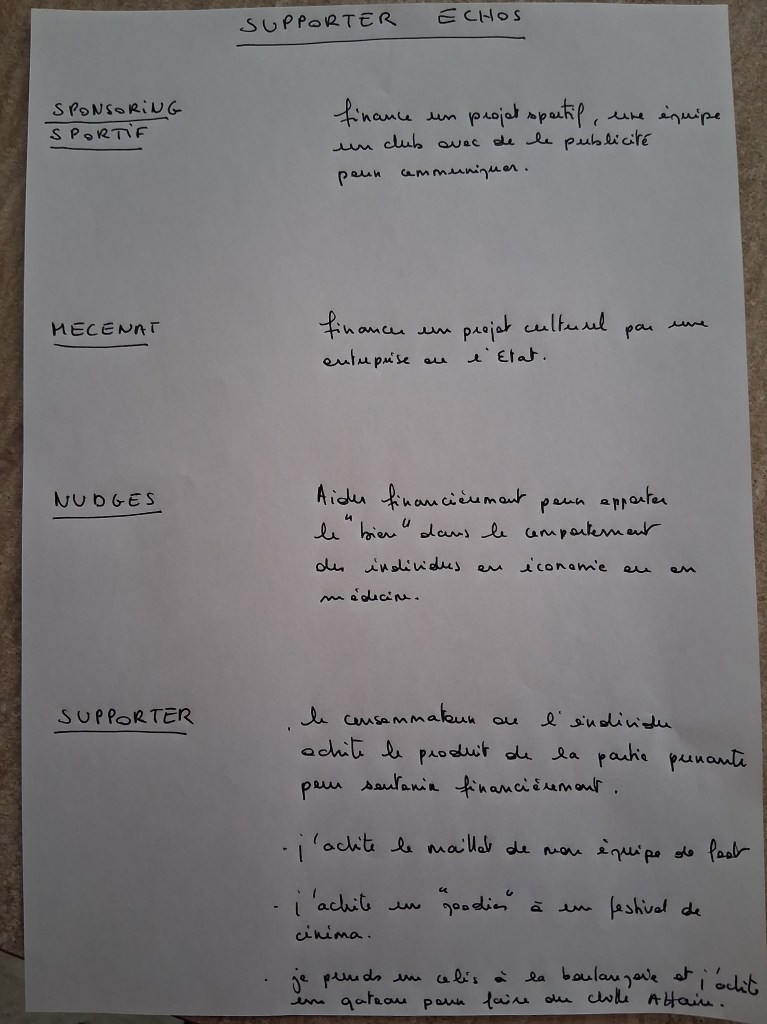 SUPPORTER ECHOS
SPONSORING
SPORTIF
finance un projet sportif, une équipe
un club avec de la publicité
pour communiquer.
MECENAT
financer un projet culturel par une
entreprise ou l'Etat.
NUDGES
Aider financièrement pour apporter
le "bien" dans le comportement
des individus en économie ou en
médecine.
SUPPORTER
. le consommateur ou l'individu
achète le produit de la partie prenante
pour soutenir financièrement.
- j'achète le maillot de mon équipe de foot
- j'achète un "goodies" à un festival de
cinéma.
. je prends un colis à la boulangerie et j'achète
un gateau pour faire du chiffre Affaire.